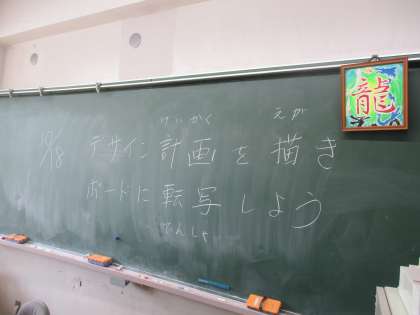 けいかく えが
12/8 デザイン計画を描き
ボードに転写しよう
てんしゃ
龍